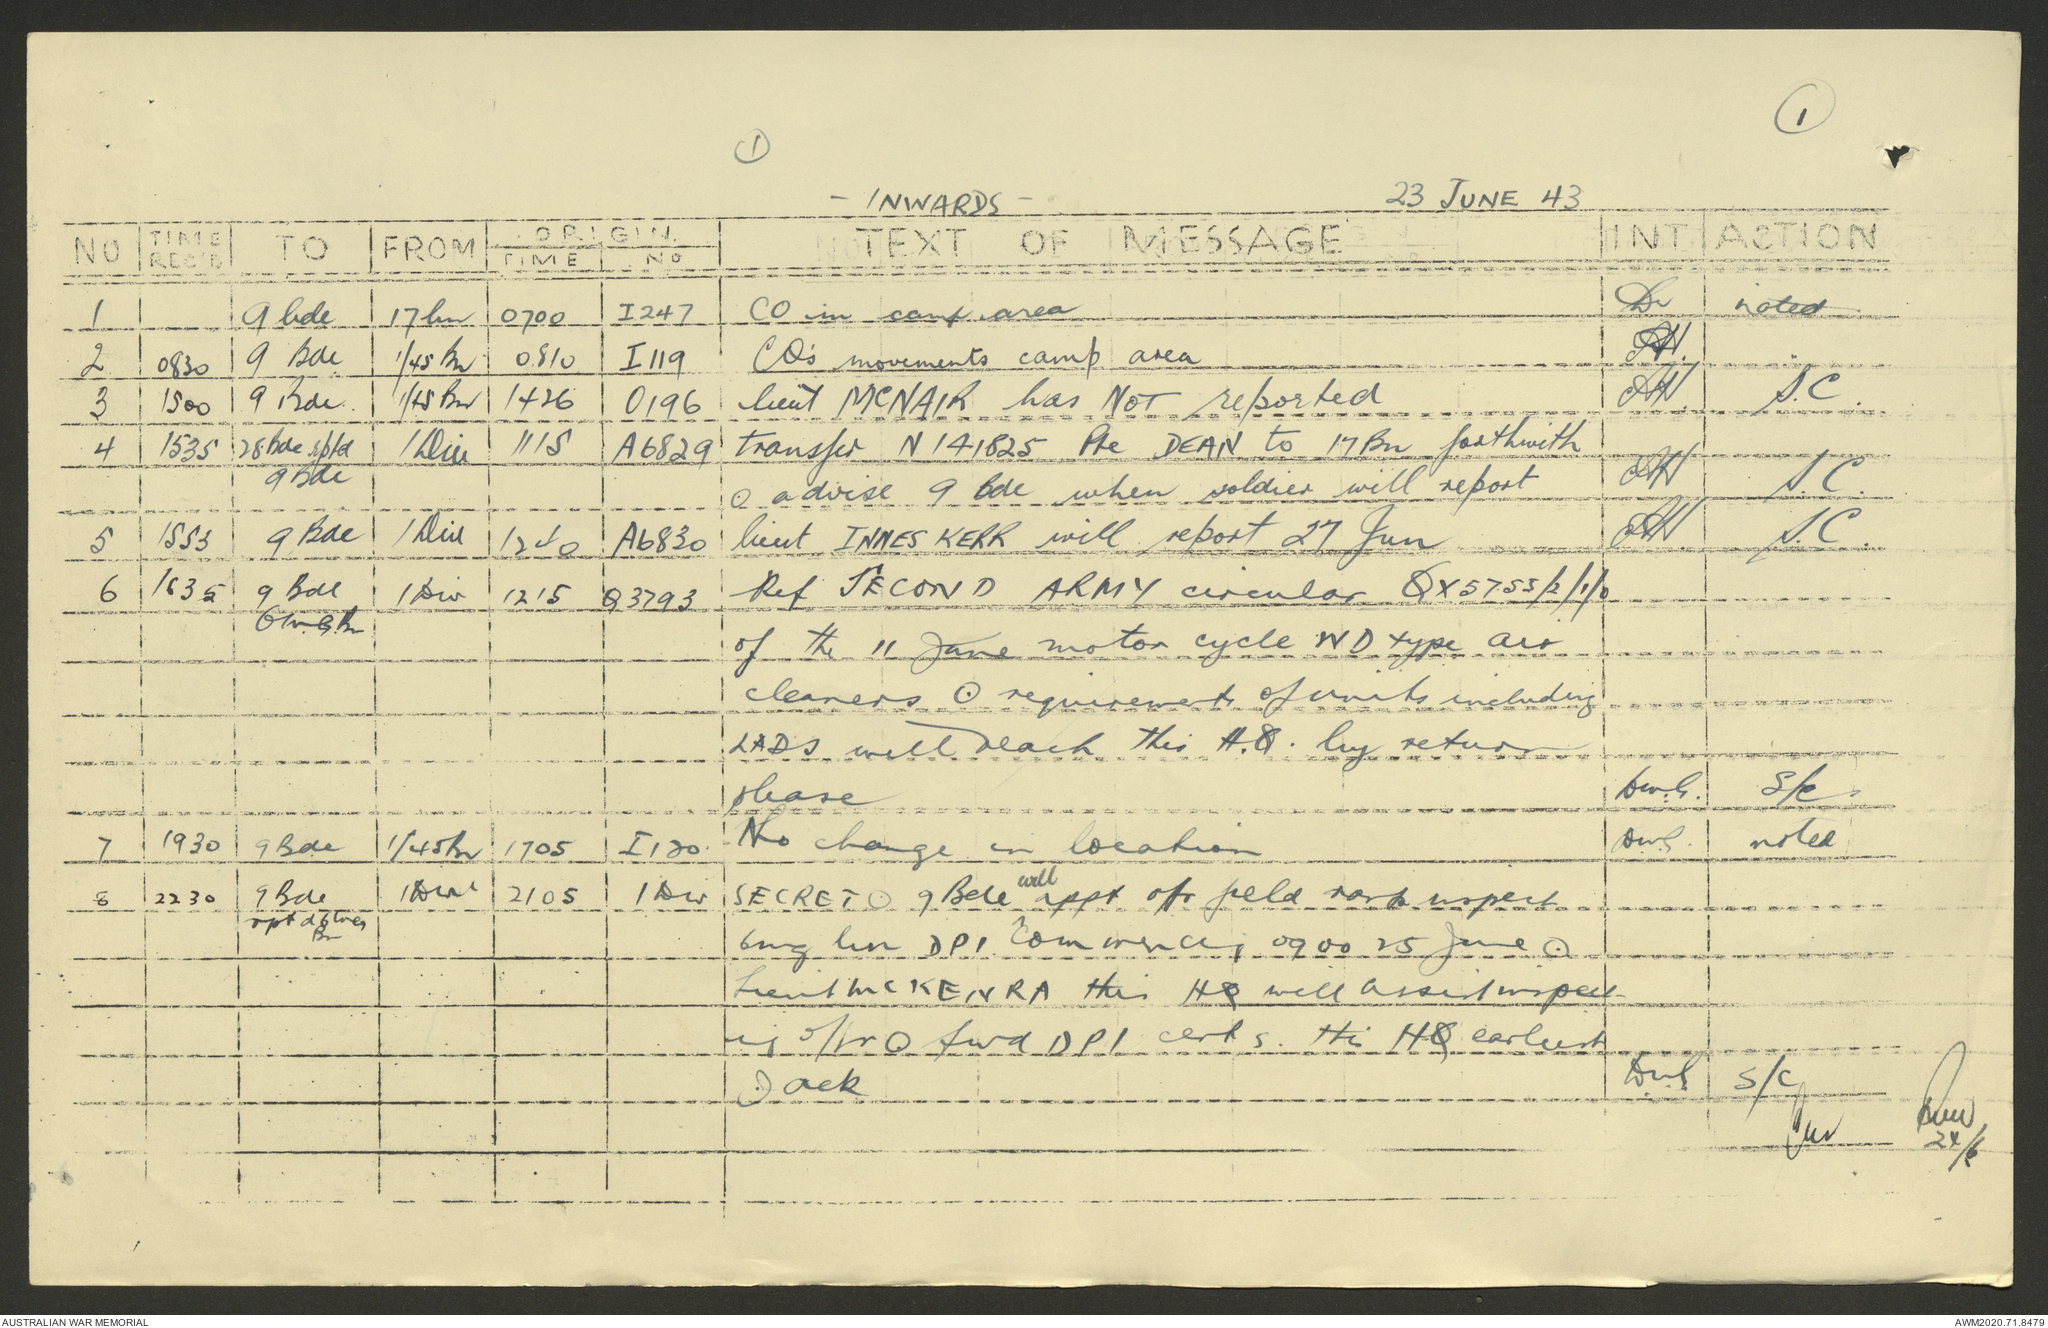 1
1
- INWARDS - 23 JUNE 43
NO TIME REC'D TO FROM ORIGIN. TIME NO TEXT OF MESSAGE INT ACTION
1 9 bde 17 bn 0700 I247 CO in camp area noted
2 0830 9 Bde 1/45 Bn 0810 I119 CO's movements camp area
3 1500 9 Bde 1/45 Bn 1426 O196 lieut MCNAIR has NOT reported S.C.
4 1535 28 Bde rptd 1 Div 1115 A6829 transfer N141825 Pte DEAN to 17 Bn forthwith
9 Bde ⊙ advise 9 Bde when soldier will report S.C.
5 1553 9 Bde 1 Div 1240 A6830 lieut INNES KERR will report 27 Jun S.C.
6 1635 9 Bde 1 Div 1215 Q3793 Ref SECOND ARMY circular QX5755/2/1/0
of the 11 June motor cycle WD type air
cleaners ⊙ requirements of units including
LADS will reach this H.Q. by return
please DWG. S/C
7 1930 9 Bde 1/45 Bn 1705 I120 No change in location DWG. noted
8 2230 9 Bde 1 Div 2105 1 Div SECRET ⊙ 9 Bde will appt offr field rank inspect
rpt Bn 6 mg bn DPI commencing 0900 25 June ⊙
Lieut McKENRA this HQ will assist inspect-
ing offr ⊙ fwd DPI certs. this HQ earliest
Jack DWG S/C
24/6
AUSTRALIAN WAR MEMORIAL AWM2020.71.8479